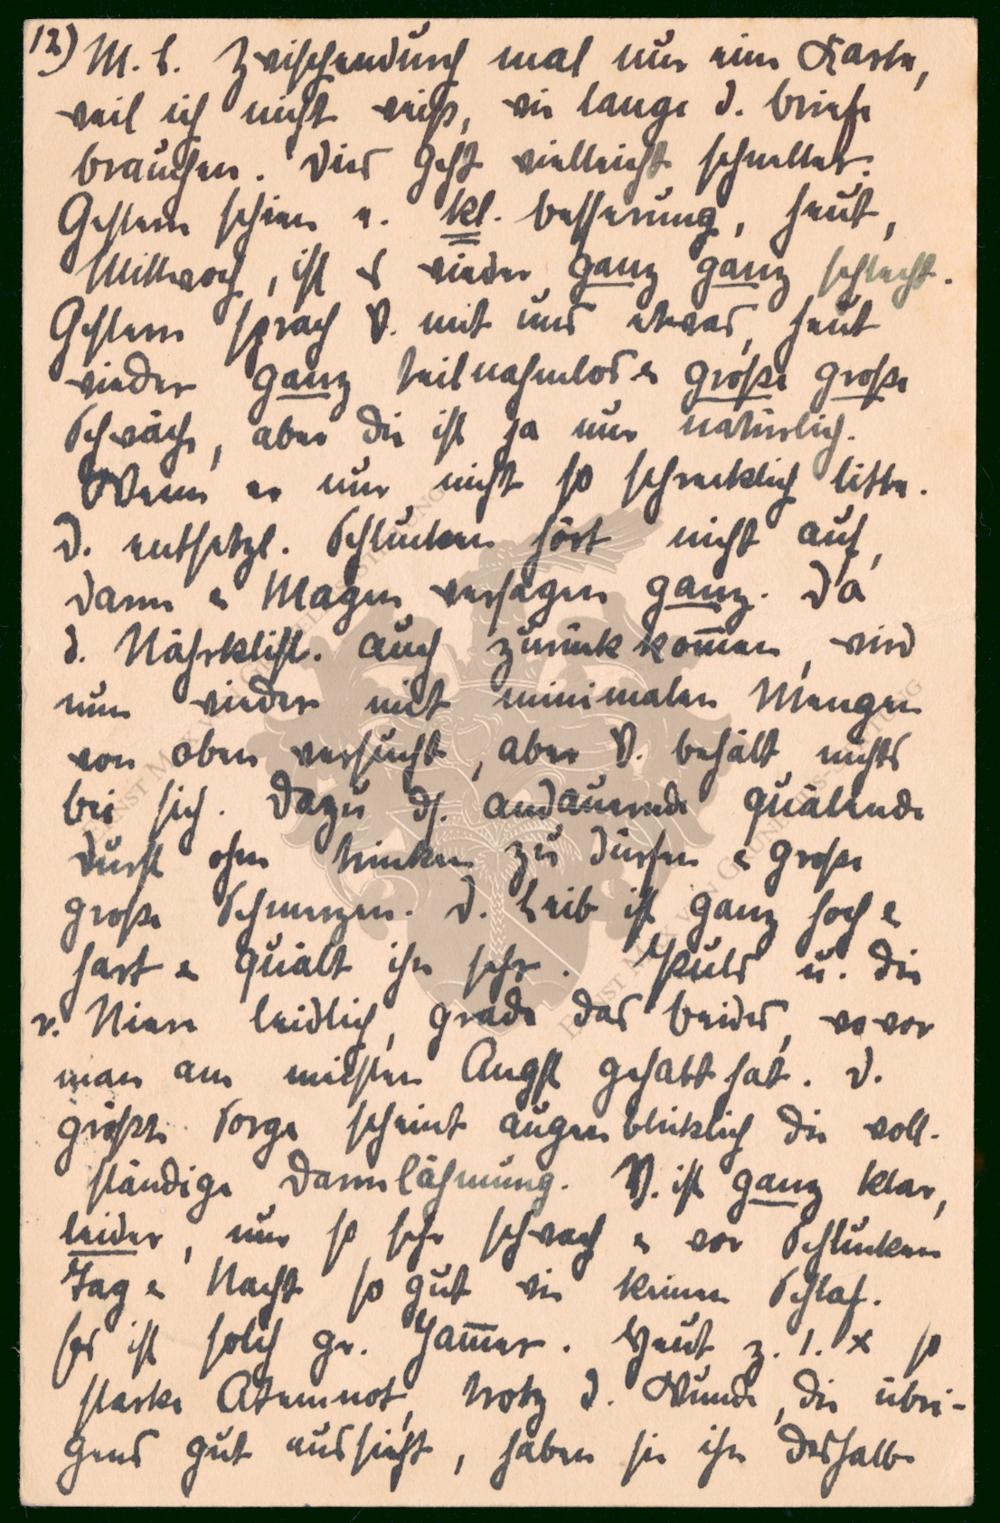 12) M. L. Zwischendurch mal nur eine Karte,
weil ich nicht weiß, wie lange d. Briefe
brauchen. Dies geht vielleicht schneller.
Gestern schien e. kl. Besserung, heut,
Mittwoch, ist es wieder ganz ganz schlecht.
Gestern sprach V. mit uns etwas, heut
wieder ganz teilnahmlos & große große
Schwäche, aber die ist ja nur natürlich.
Wenn er nur nicht so schrecklich litte.
D. entsetzl. Schlucken hört nicht auf,
Darm & Magen versagen ganz. Da
d. Nährklist. auch zurückkom̅en, wird
nun wieder mit minimalen Mengen
von oben versucht, aber V. behält nichts
bei sich. Dazu ds. andauernde quälende
Durst ohne trinken zu dürfen & große
große Schmerzen. D. Leib ist ganz hoch &
hart & quält ihn sehr. Puls u. die
r. Niere leidlich, grade das beides, wovor
man am meisten Angst gehabt hat. D.
größte Sorge scheint augenblicklich die voll-
ständige Darmlähmung. V. ist ganz klar,
leider, nur so sehr schwach & vor Schlucken
Tag & Nacht so gut wie keinen Schlaf.
Es ist solch gr. Jam̅er. Heut z. 1. x so
starke Atemnot, trotz d. Wunde, die übri-
gens gut aussieht, haben sie ihn deshalb